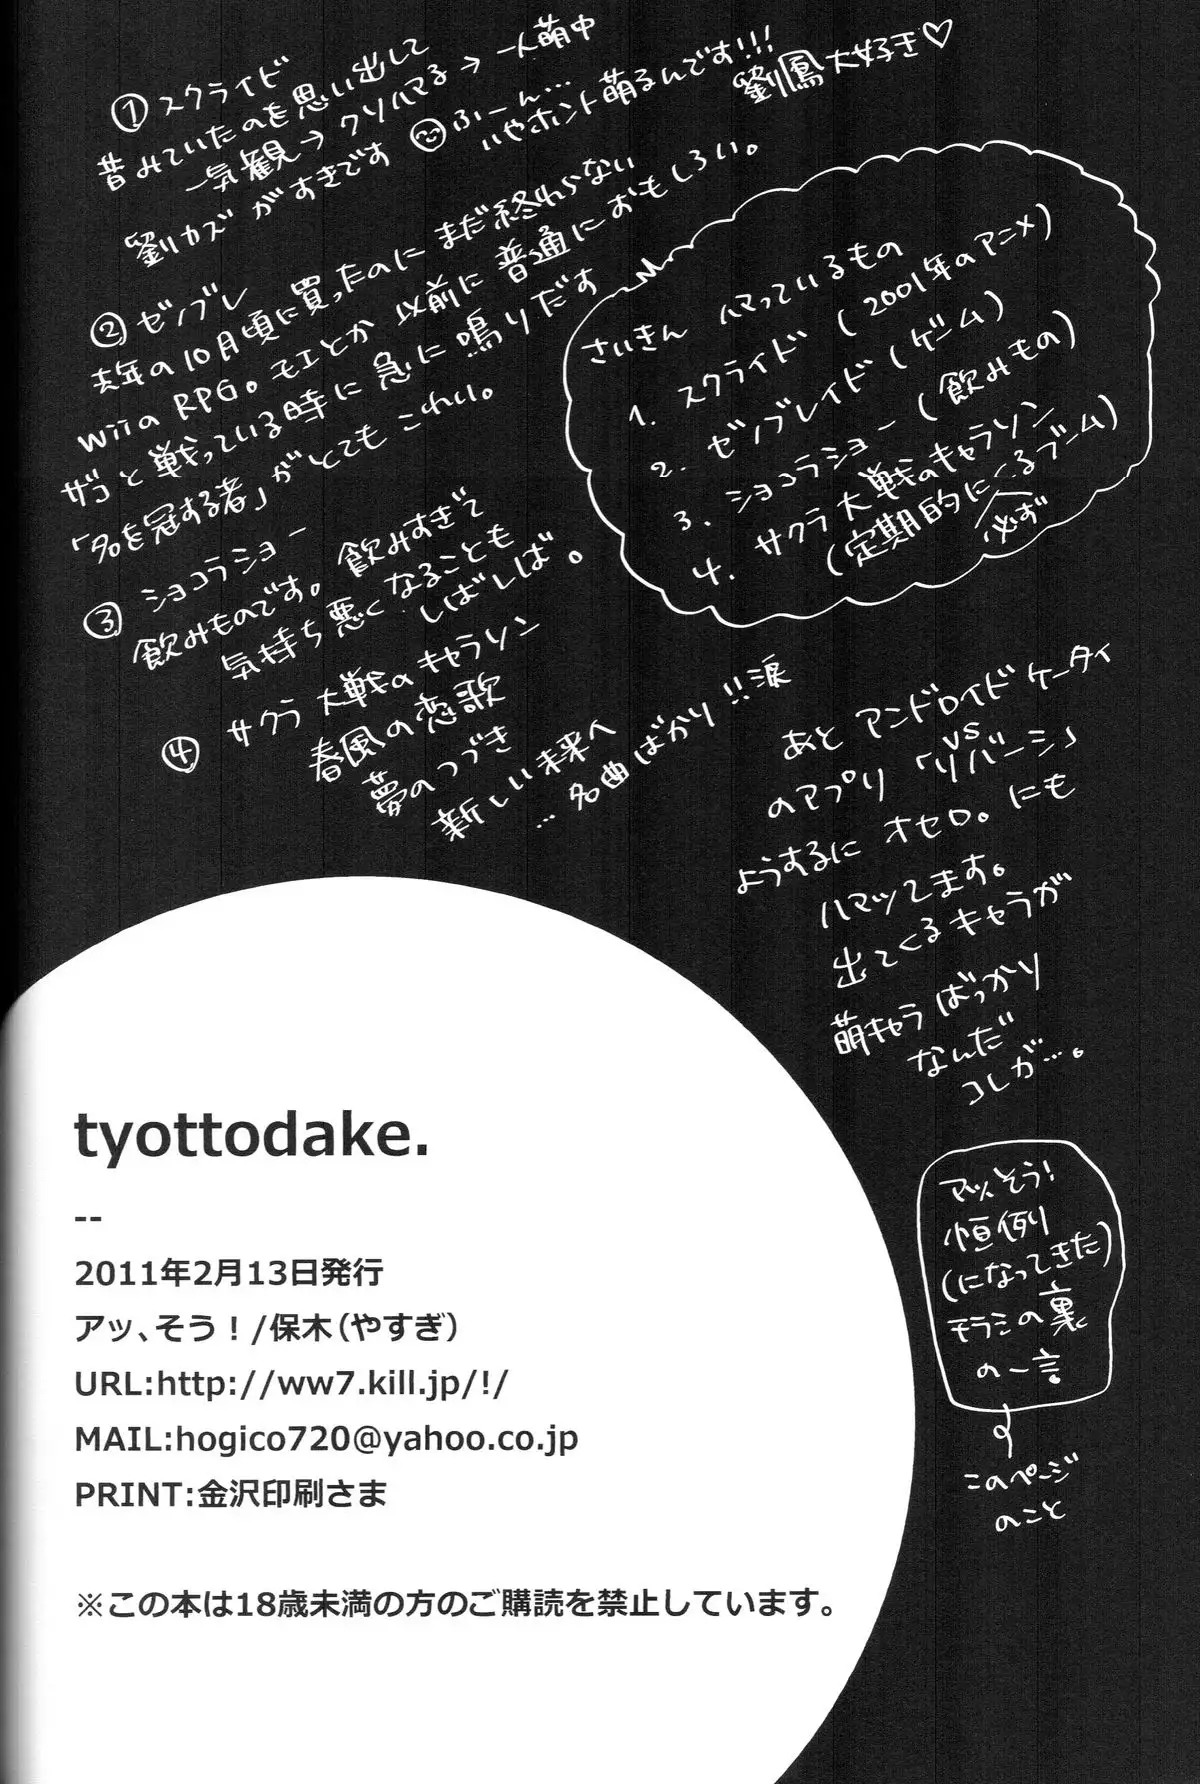 さいきん ハマっているもの
1. スクライド（2001年のアニメ）
2. ゼノブレイド（ゲーム）
3. ショコラショー（飲みもの）
4. サクラ大戦のキャラソン
（定期的にくるブーム）
必ず
① スクライド
昔みていたのを思い出して
一気観→クソハマる→一人萌中
劉カズがすきです ふーん…
いやホント萌るんです!!!
劉鳳大好き♡
② ゼノブレ
去年の10月頃に買ったのにまだ終わらない
wiiのRPG。モエとか以前に普通におもしろい。
ザコと戦っている時に急に鳴りだす
「名を冠する者」がとてもこわい。
③ ショコラショー
飲みものです。飲みすぎで
気持ち悪くなることも
しばしば。
④ サクラ大戦のキャラソン
春風の恋歌
夢のつづき
新しい未来へ
… 名曲ばかり!!涙
あと アンドロイドケータイ
のアプリ「vsリバーシ」
ようするに オセロ。にも
ハマッてます。
出てくるキャラが
萌キャラばっかり
なんだ
コレが…。
アッそう!
恒例
(になってきた)
モラシの裏
の一言
このページ
のこと
tyottodake.
--
2011年2月13日発行
アッ、そう！/保木（やすぎ）
URL:http://ww7.kill.jp/!/
MAIL:hogico720@yahoo.co.jp
PRINT:金沢印刷さま
※この本は18歳未満の方のご購読を禁止しています。